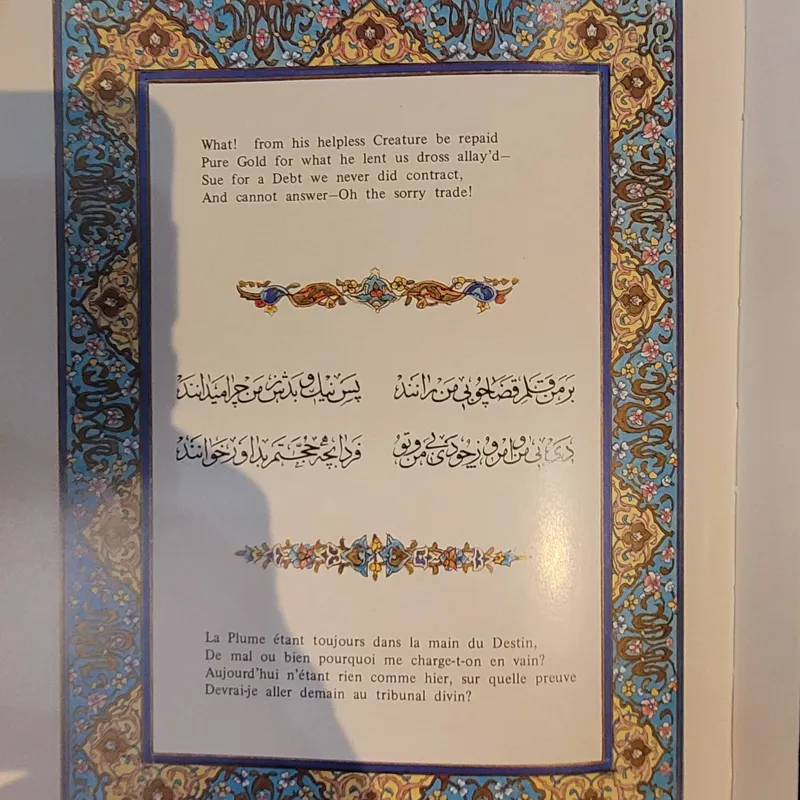 What! from his helpless Creature be repaid
Pure Gold for what he lent us dross allay'd—
Sue for a Debt we never did contract,
And cannot answer—Oh the sorry trade!
بر من قلم قضا چو بی من رانند پس نیک و بدش ز من چرا میدانند
دی بی من و امروز چو دی بی من و تو فردا بچه حجتم بداور خوانند
La Plume étant toujours dans la main du Destin,
De mal ou bien pourquoi me charge-t-on en vain?
Aujourd'hui n'étant rien comme hier, sur quelle preuve
Devrai-je aller demain au tribunal divin?